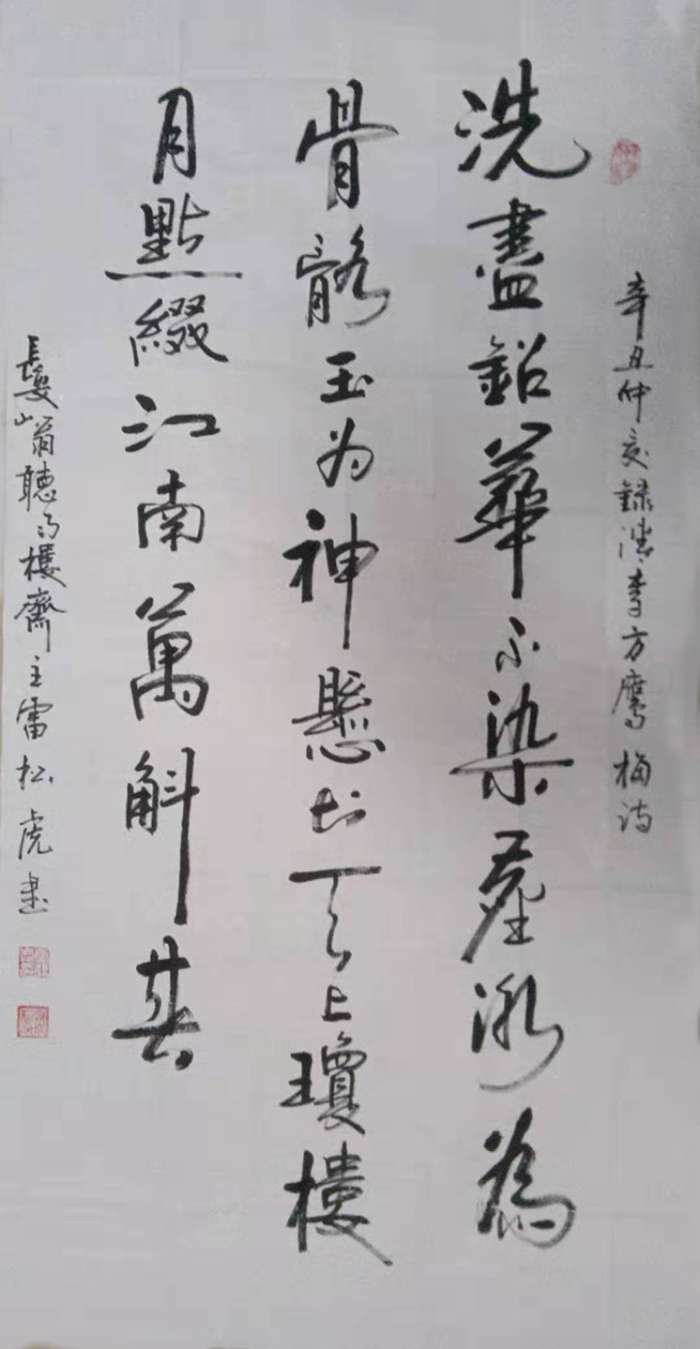 辛丑仲夏録清李方鹰梅诗
洗盡鉛華不染塵冰為
骨骼玉为神懸知天上瓊樓
月點綴江南萬斛春
翁聽雨樓齋主雷松虎書